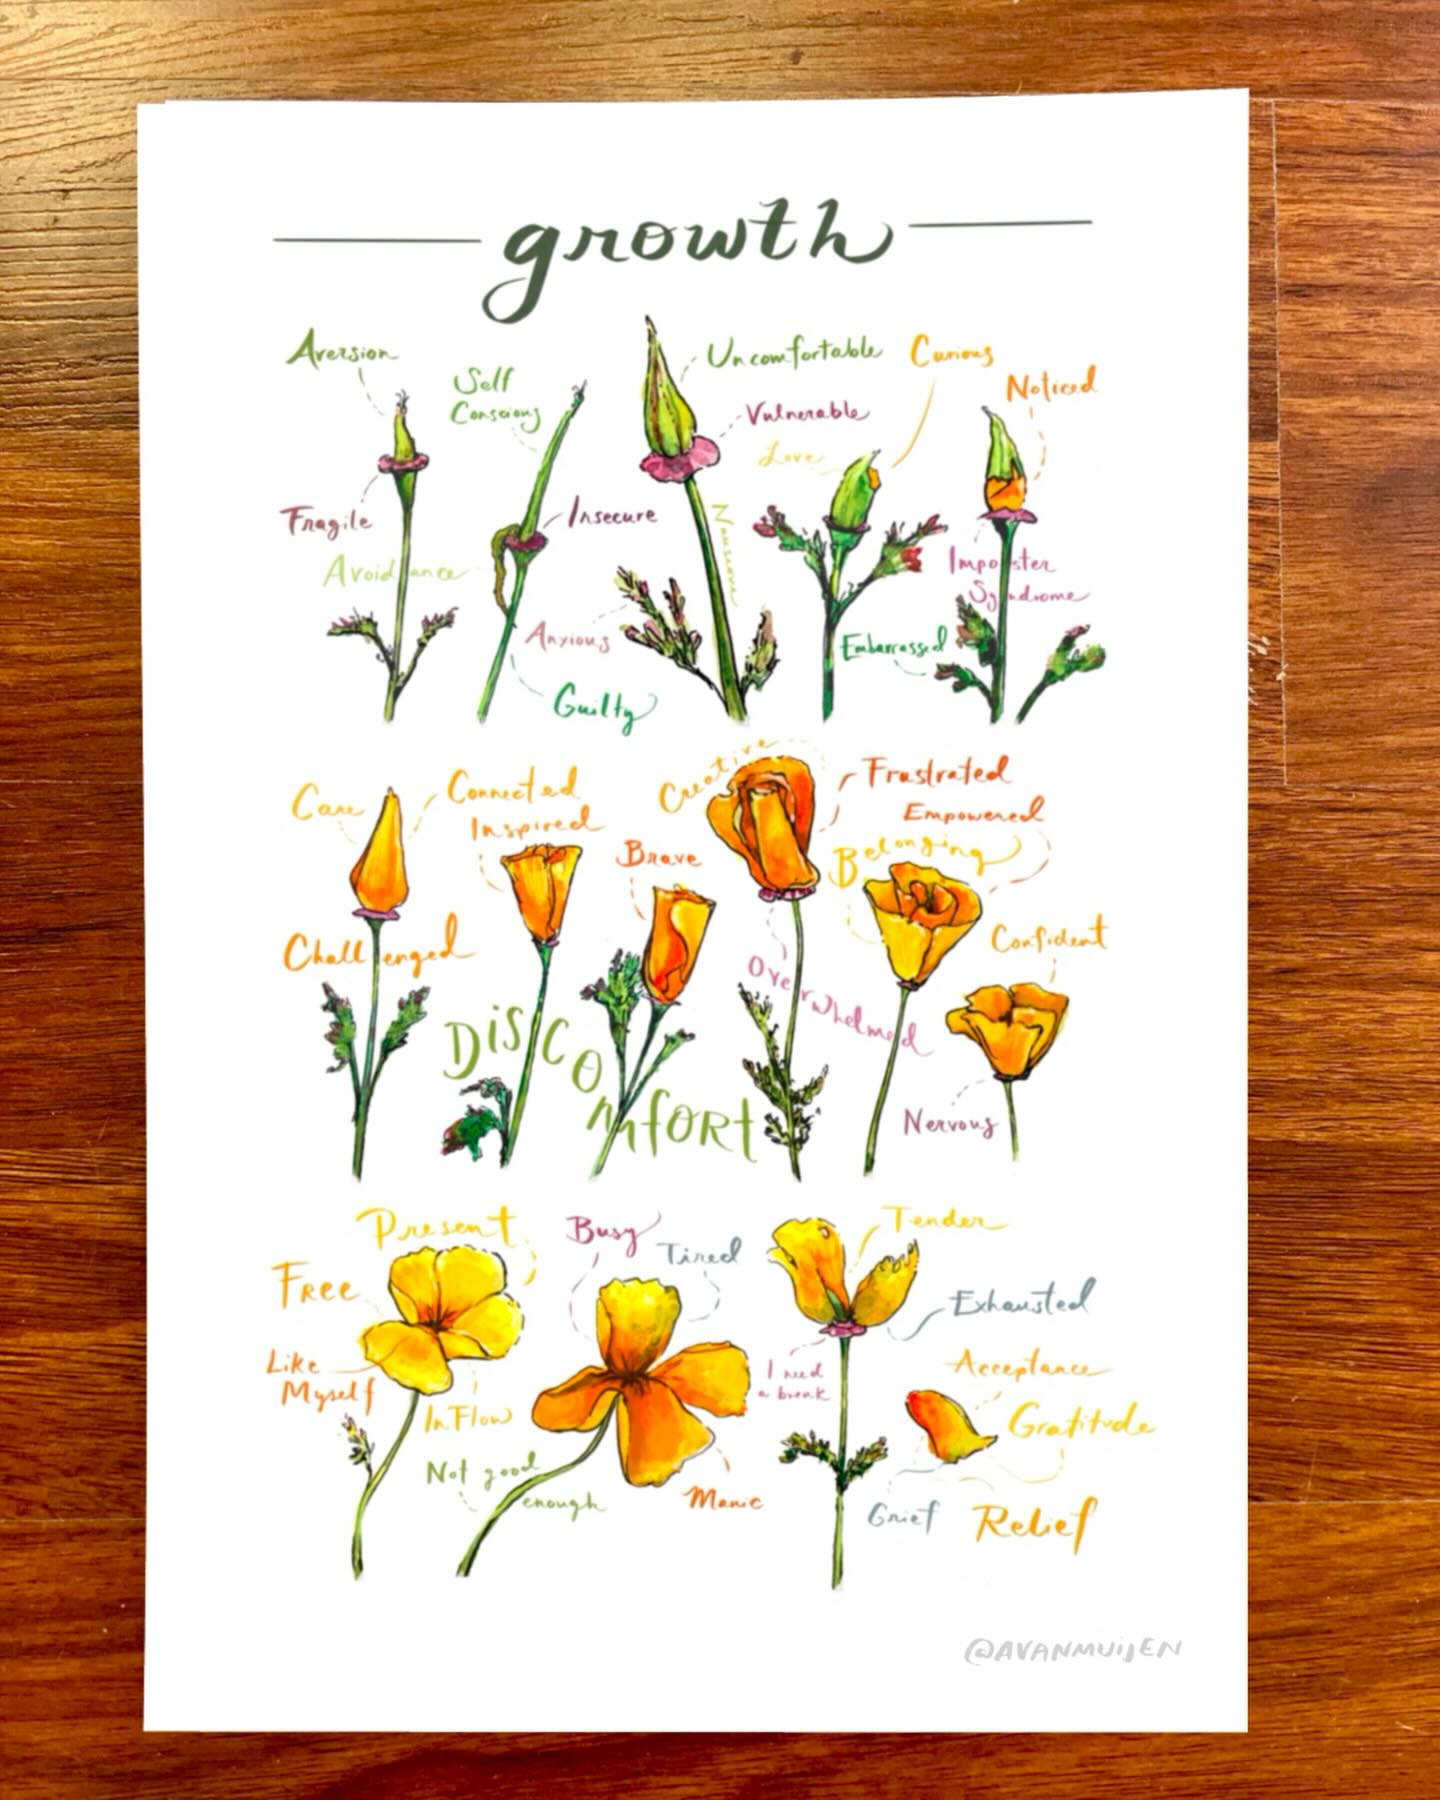 growth
Aversion
Self
Conscious
Uncomfortable
Curious
Noticed
Vulnerable
Love
Fragile
Insecure
Nauseous
Avoidance
Imposter
Syndrome
Anxious
Embarrassed
Guilty
Care
Connected
Inspired
Creative
Frustrated
Empowered
Brave
Belonging
Challenged
Confident
Overwhelmed
Discomfort
Nervous
Present
Busy
Tired
Tender
Free
Exhausted
Like
Myself
I need
a break
Acceptance
In Flow
Gratitude
Not good
enough
Manic
Grief
Relief
@AVANMUIJEN